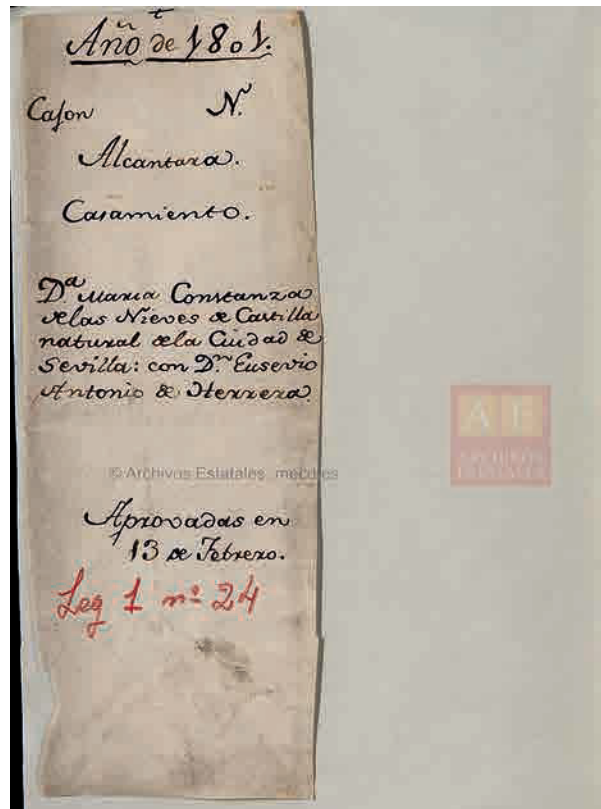 Año de 1801.
Cajon N.
Alcantara.
Casamiento.
D.ª Maria Constanza
de las Nieves de Castilla
natural de la Ciudad de
Sevilla: con D.n Eusevio
Antonio de Herrera.
© Archivos Estatales, mecd.es
AE
ARCHIVOS
ESTATALES
Aprovadas en
13 de Febrero.
Leg 1 nº 24